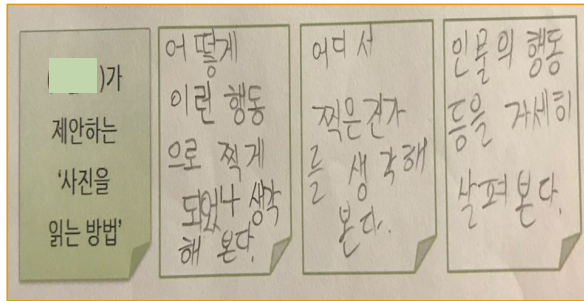 ( )가
제안하는
'사진을
읽는 방법'
어떻게
이런 행동
으로 찍게
되었나 생각
해 본다.
어디서
찍은건가
를 생각해
본다.
인물의 행동
등을 자세히
살펴본다.